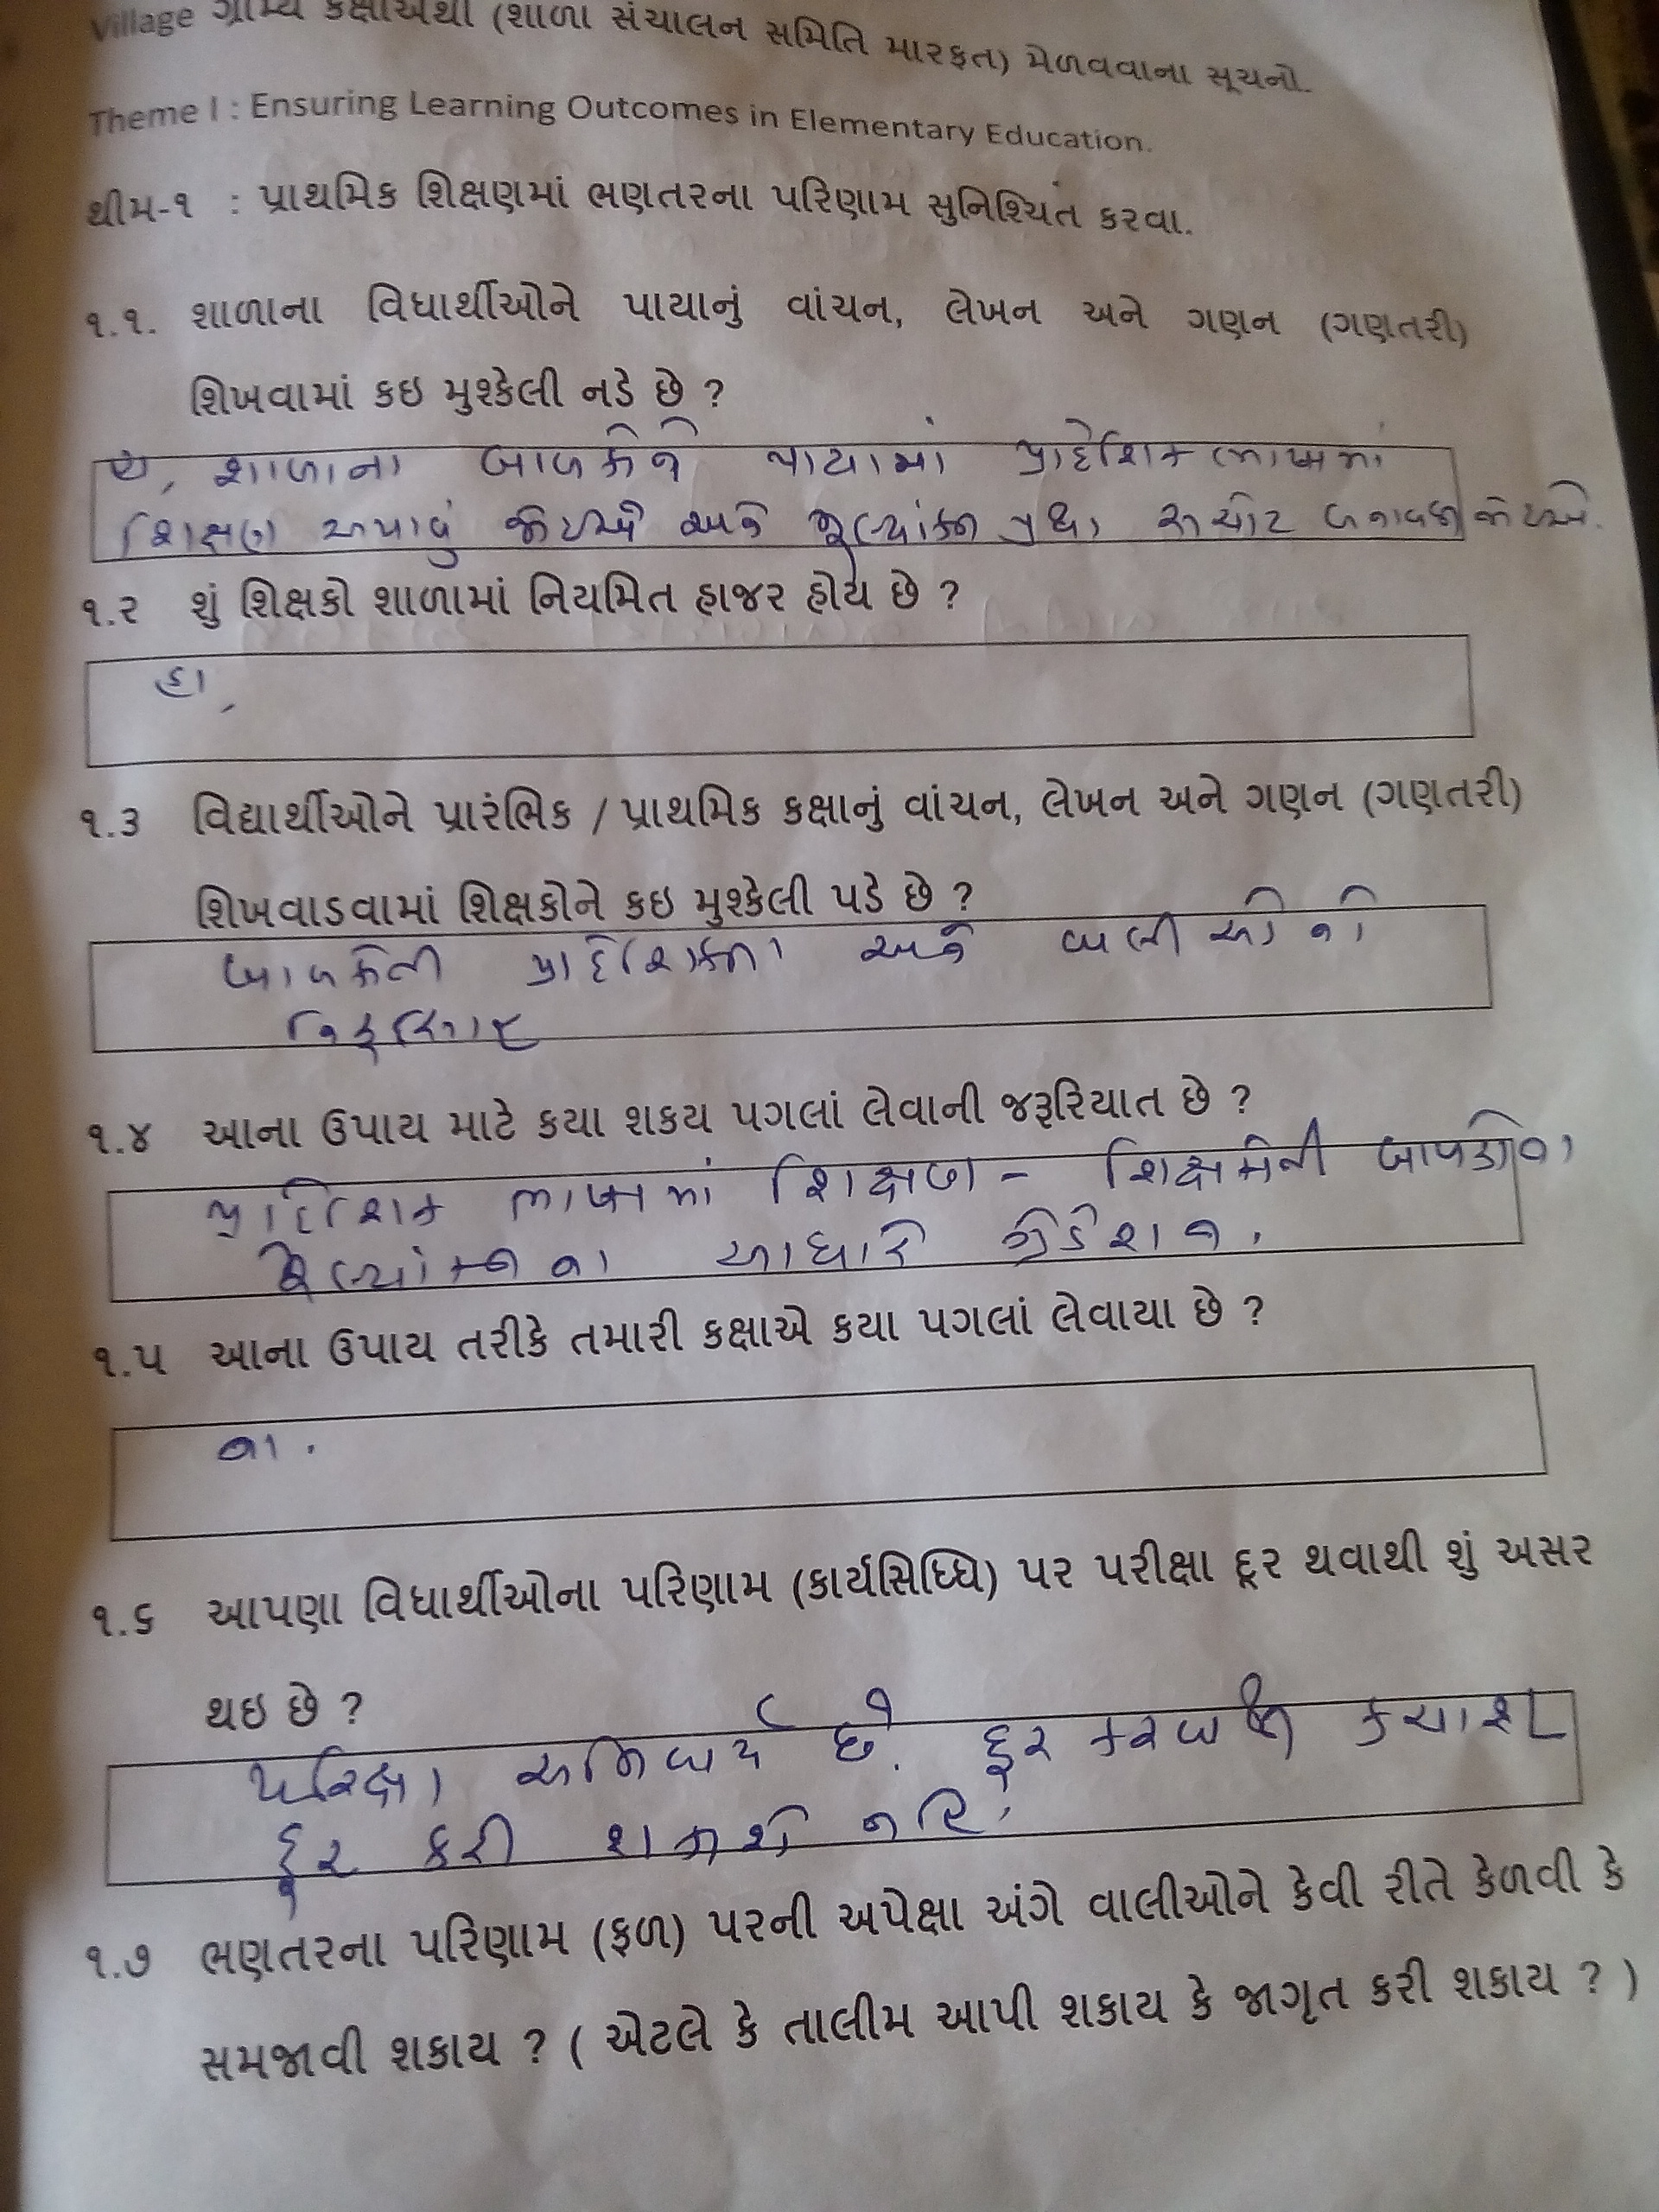 Village ગ્રામ્ય કક્ષાએથી (શાળા સંચાલન સમિતિ મારફત) મેળવવાના સૂચનો.
Theme I : Ensuring Learning Outcomes in Elementary Education.
થીમ-૧ : પ્રાથમિક શિક્ષણમાં ભણતરના પરિણામ સુનિશ્ચિત કરવા.
૧.૧. શાળાના વિધાર્થીઓને પાયાનું વાંચન, લેખન અને ગણન (ગણતરી)
શિખવામાં કઇ મુશ્કેલી નડે છે ?
શાળાના બાળકોને પાયામાં પ્રાદેશિક ભાષામાં
શિક્ષણ અપાવું જોઇએ અને મૂલ્યાંકન પ્રથા સચોટ બનાવવી જોઇએ.
૧.૨ શું શિક્ષકો શાળામાં નિયમિત હાજર હોય છે ?
હા,
૧.૩ વિદ્યાર્થીઓને પ્રારંભિક / પ્રાથમિક કક્ષાનું વાંચન, લેખન અને ગણન (ગણતરી)
શિખવાડવામાં શિક્ષકોને કઇ મુશ્કેલી પડે છે ?
બાળકોની પ્રાદેશિકતા અને વાલીઓની
૧.૪ આના ઉપાય માટે કયા શકય પગલાં લેવાની જરૂરિયાત છે ?
પ્રાદેશિક ભાષામાં શિક્ષણ - શિક્ષકોની બાળકોના
મૂલ્યાંકનના આધારે ગ્રેડેશન.
૧.૫ આના ઉપાય તરીકે તમારી કક્ષાએ કયા પગલાં લેવાયા છે ?
ના.
૧.૬ આપણા વિધાર્થીઓના પરિણામ (કાર્યસિધ્ધિ) પર પરીક્ષા દૂર થવાથી શું અસર
થઇ છે ?
પરિક્ષા અનિવાર્ય છે. દૂર કરવાથી કચાશ
દૂર કરી શકાશે નહિ.
૧.૭ ભણતરના પરિણામ (ફળ) પરની અપેક્ષા અંગે વાલીઓને કેવી રીતે કેળવી કે
સમજાવી શકાય ? ( એટલે કે તાલીમ આપી શકાય કે જાગૃત કરી શકાય ? )